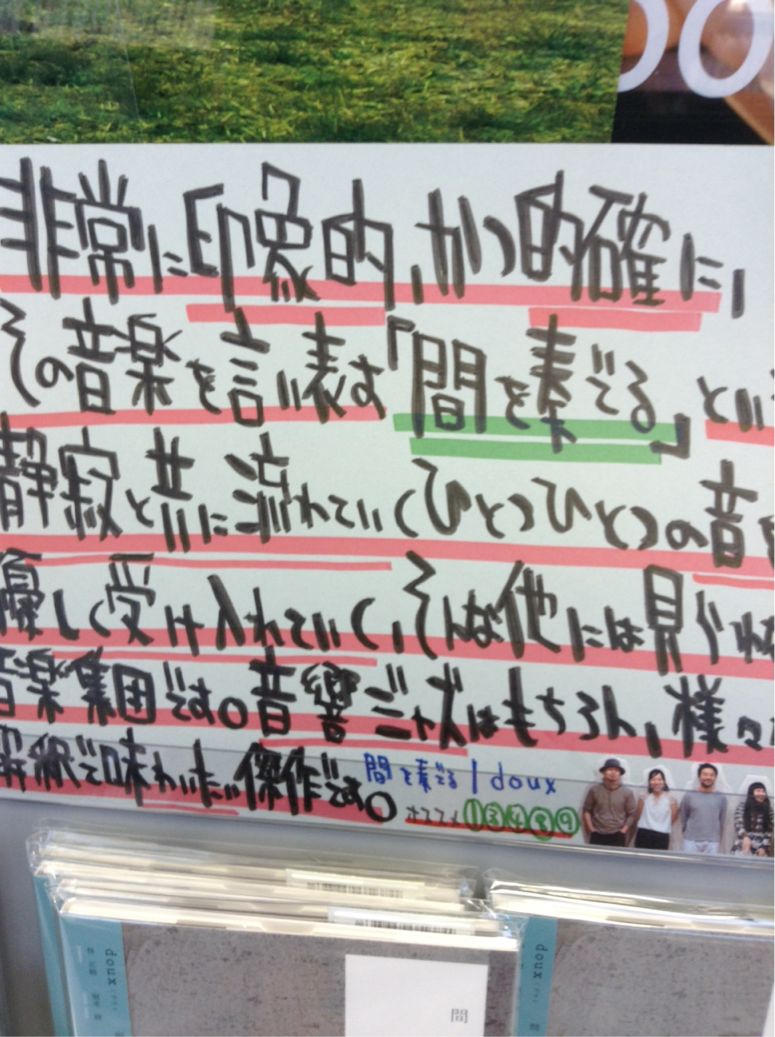 DO
非常に印象的、かつ的確に、
その音楽を言い表す『間を奏でる』とい
静寂と共に流れていくひとつひとつの音を
優しく受け入れていく、そんな他には見られ
音楽集団です。音響ジャズはもちろん、様々
解釈で味わいたい傑作です。
間を奏でる / doux
オススメ ①③④⑧⑨
doux
doux
間